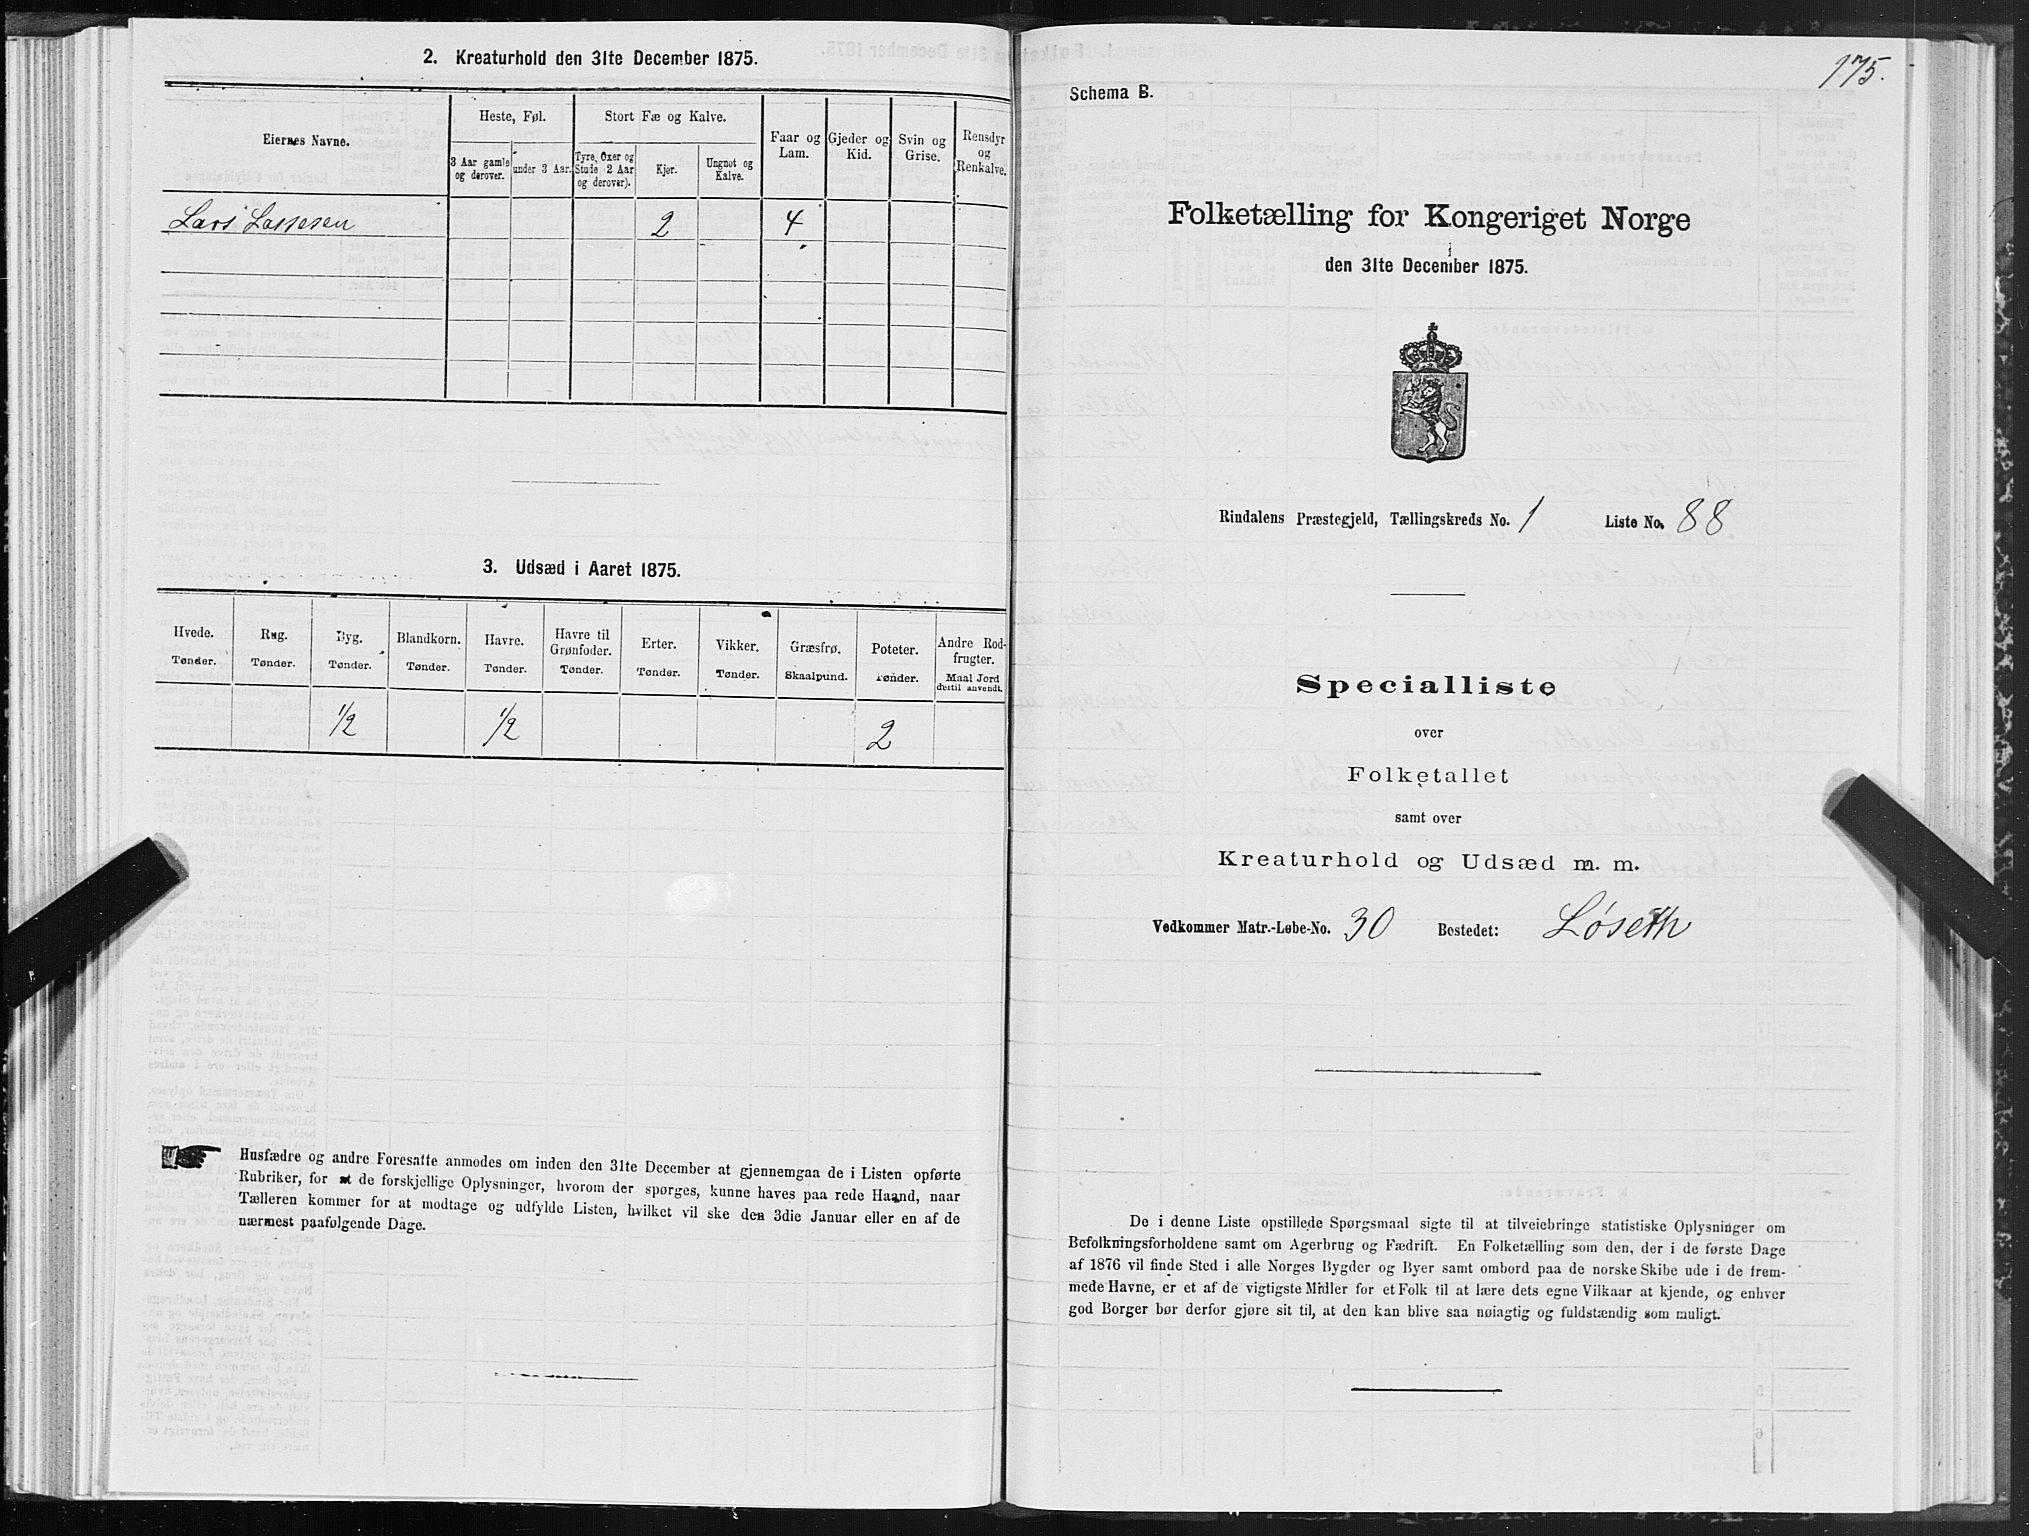 2. Kreaturhold den 31te December 1875.
Eiernes Navne.
Heste, Føl.
Stort Fæ og Kalve.
Faar og Lam.
Gjeder og Kid.
Svin og Grise.
Rensdyr og Renkalve.
3 Aar gamle og derover.
under 3 Aar.
Tyre, Oxer og Stude 2 Aar og derover).
Kjør.
Ungnøt og Kalve.
Lars Larsen 2 4
3. Udsæd i Aaret 1875.
Hvede. Rug. Byg. Blandkorn. Havre. Havre til Grønfoder. Erter. Vikker. Græsfrø. Poteter. Andre Rodfrugter.
Tønder. Tønder. Tønder. Tønder. Tønder. Tønder. Tønder. Tønder. Skaalpund. Tønder. Maal Jord dertil anvendt.
1/2 1/2 2
Husfædre og andre Foresatte anmodes om inden den 31te December at gjennemgaa de i Listen opførte
Rubriker, for at de forskjellige Oplysninger, hvorom der spørges, kunne haves paa rede Haand, naar
Tælleren kommer for at modtage og udfylde Listen, hvilket vil ske den 3die Januar eller en af de
nærmest paafølgende Dage.
175.
Schema B.
Folketælling for Kongeriget Norge
den 31te December 1875.
Rindalens Præstegjeld, Tællingskreds No. 1 Liste No. 88
Specialliste
over
Folketallet
samt over
Kreaturhold og Udsæd m. m.
Vedkommer Matr.-Løbe-No. 30 Bostedet: Løseth
De i denne Liste opstillede Spørgsmaal sigte til at tilveiebringe statistiske Oplysninger om
Befolkningsforholdene samt om Agerbrug og Fædrift. En Folketælling som den, der i de første Dage
af 1876 vil finde Sted i alle Norges Bygder og Byer samt ombord paa de norske Skibe ude i de frem-
mede Havne, er et af de vigtigste Midler for et Folk til at lære dets egne Vilkaar at kjende, og enhver
god Borger bør derfor gjøre sit til, at den kan blive saa nøiagtig og fuldstændig som muligt.